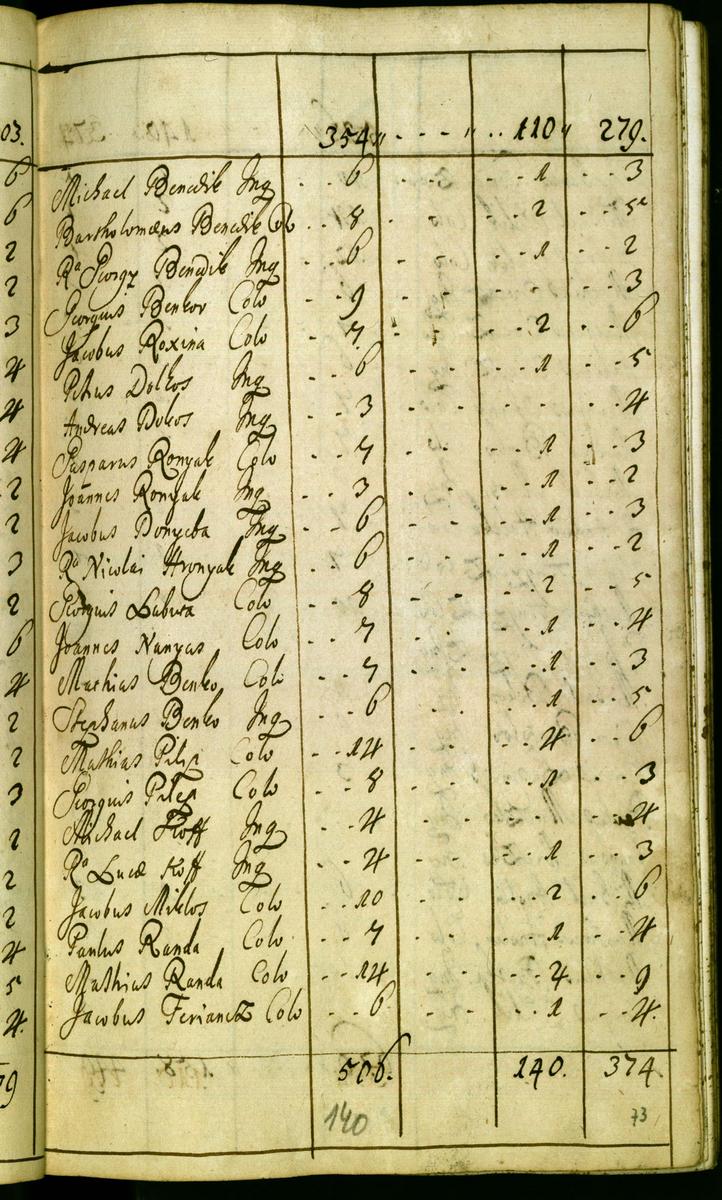 03. 354 „ - - - „ .. 110 „ 279.
6 Michael Benedik Inq . . 6 . . . 1 . . 3
6 Bartholomæus Benedik Colo . . 8 . . . 2 . . 5
2 Ra Georgy Benedik Inq . . 6 . . . 1 . . 2
2 Georgius Benkov Colo . . 9 . . . . . . 3
3 Jacobus Roxina Colo . . 7 . . . 2 . . 6
4 Petrus Dolkos Inq . . 6 . . . 1 . . 5
4 Andreas Dolos Inq . . 3 . . . . . . 4
4 Gasparus Ronyak Colo . . 7 . . . 1 . . 3
2 Joannes Ronyak Inq . . 3 . . . 1 . . 2
2 Jacobus Inq . . 6 . . . 1 . . 3
3 Ra Nicolai Hronyak Inq . . 6 . . . 1 . . 2
2 Georgius Labuza Colo . . 8 . . . 2 . . 5
6 Joannes Nanyas Colo . . 7 . . . 1 . . 4
4 Mathias Benko Colo . . 7 . . . 1 . . 3
2 Stephanus Benko Inq . . 6 . . . 1 . . 5
2 Mathias Colo . . 14 . . . 4 . . 6
3 Georgius Colo . . 8 . . . 1 . . 3
2 Michael Koff Inq . . 4 . . . . . . 4
2 Ra Lucæ Koff Inq . . 4 . . . 1 . . 3
2 Jacobus Miklos Colo . . 10 . . . 2 . . 6
4 Paulus Randa Colo . . 7 . . . 1 . . 4
5 Mathias Randa Colo . . 14 . . . 4 . . 9
4. Jacobus Feriancz Colo . . 6 . . . 1 . . 4.
79 506. 140. 374
140 73